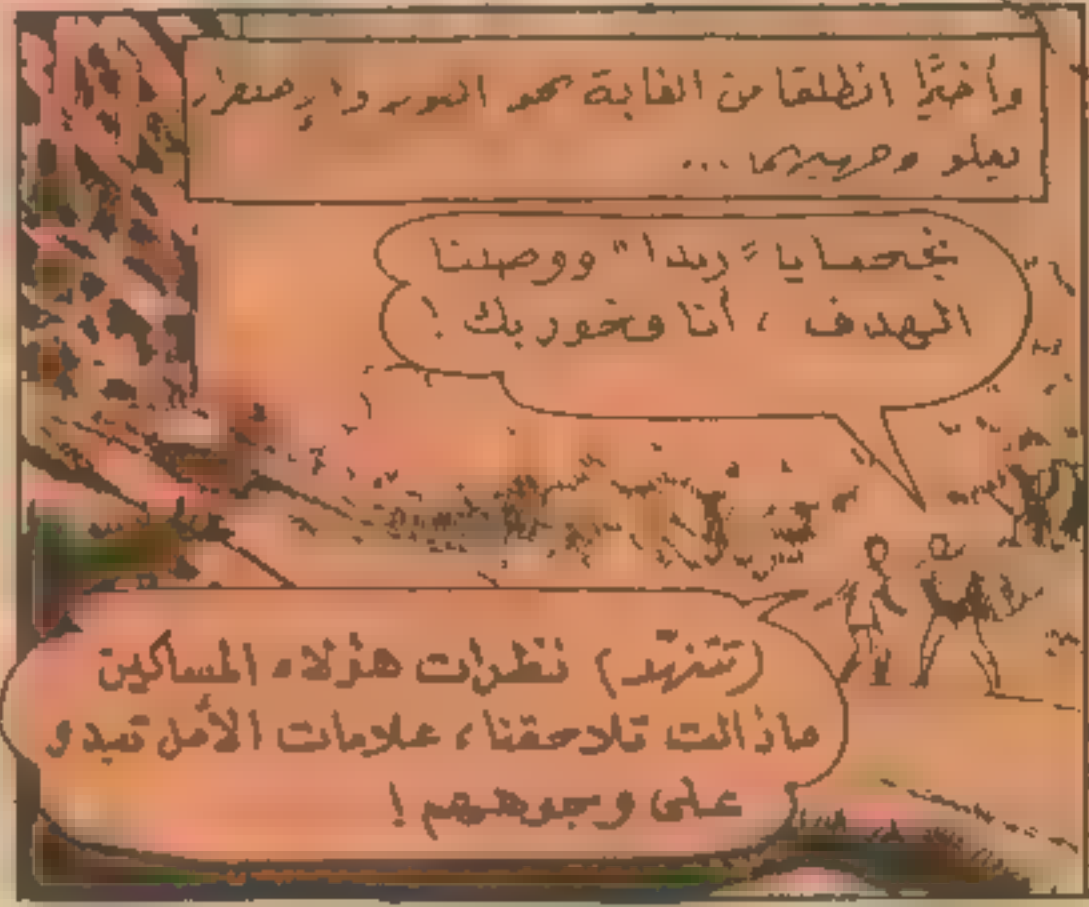 وأخيرًا انطلقا من الغابة نحو
يعلو وجهيهما ...
نجحنا يا "ريدا" ووصلنا
الهدف ، أنا فخور بك !
(تتنهّد) نظرات هؤلاء المساكين
مازالت تلاحقنا، علامات الأمل تبدو
على وجوههم !